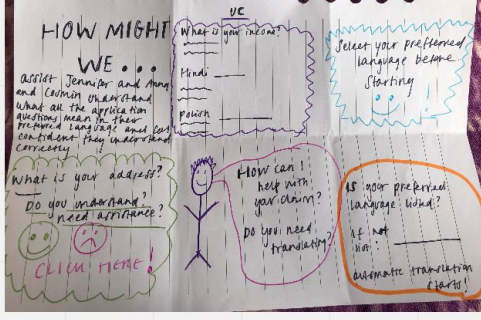 HOW MIGHT
WE...
assist Jennifer and Anna
and Cosmin understand
what all the application
questions mean in their
preferred language and feel
confident they understand
correctly
UC
What is your income?
Hindi
Polish
Select your preferred
language before
starting
!
What is your address?
Do you understand?
need assistance?
CLICK HERE!
How can I
help with
your claim?
Do you need
translating?
Is your preferred
language listed?
If not
list:
automatic translation
starts!